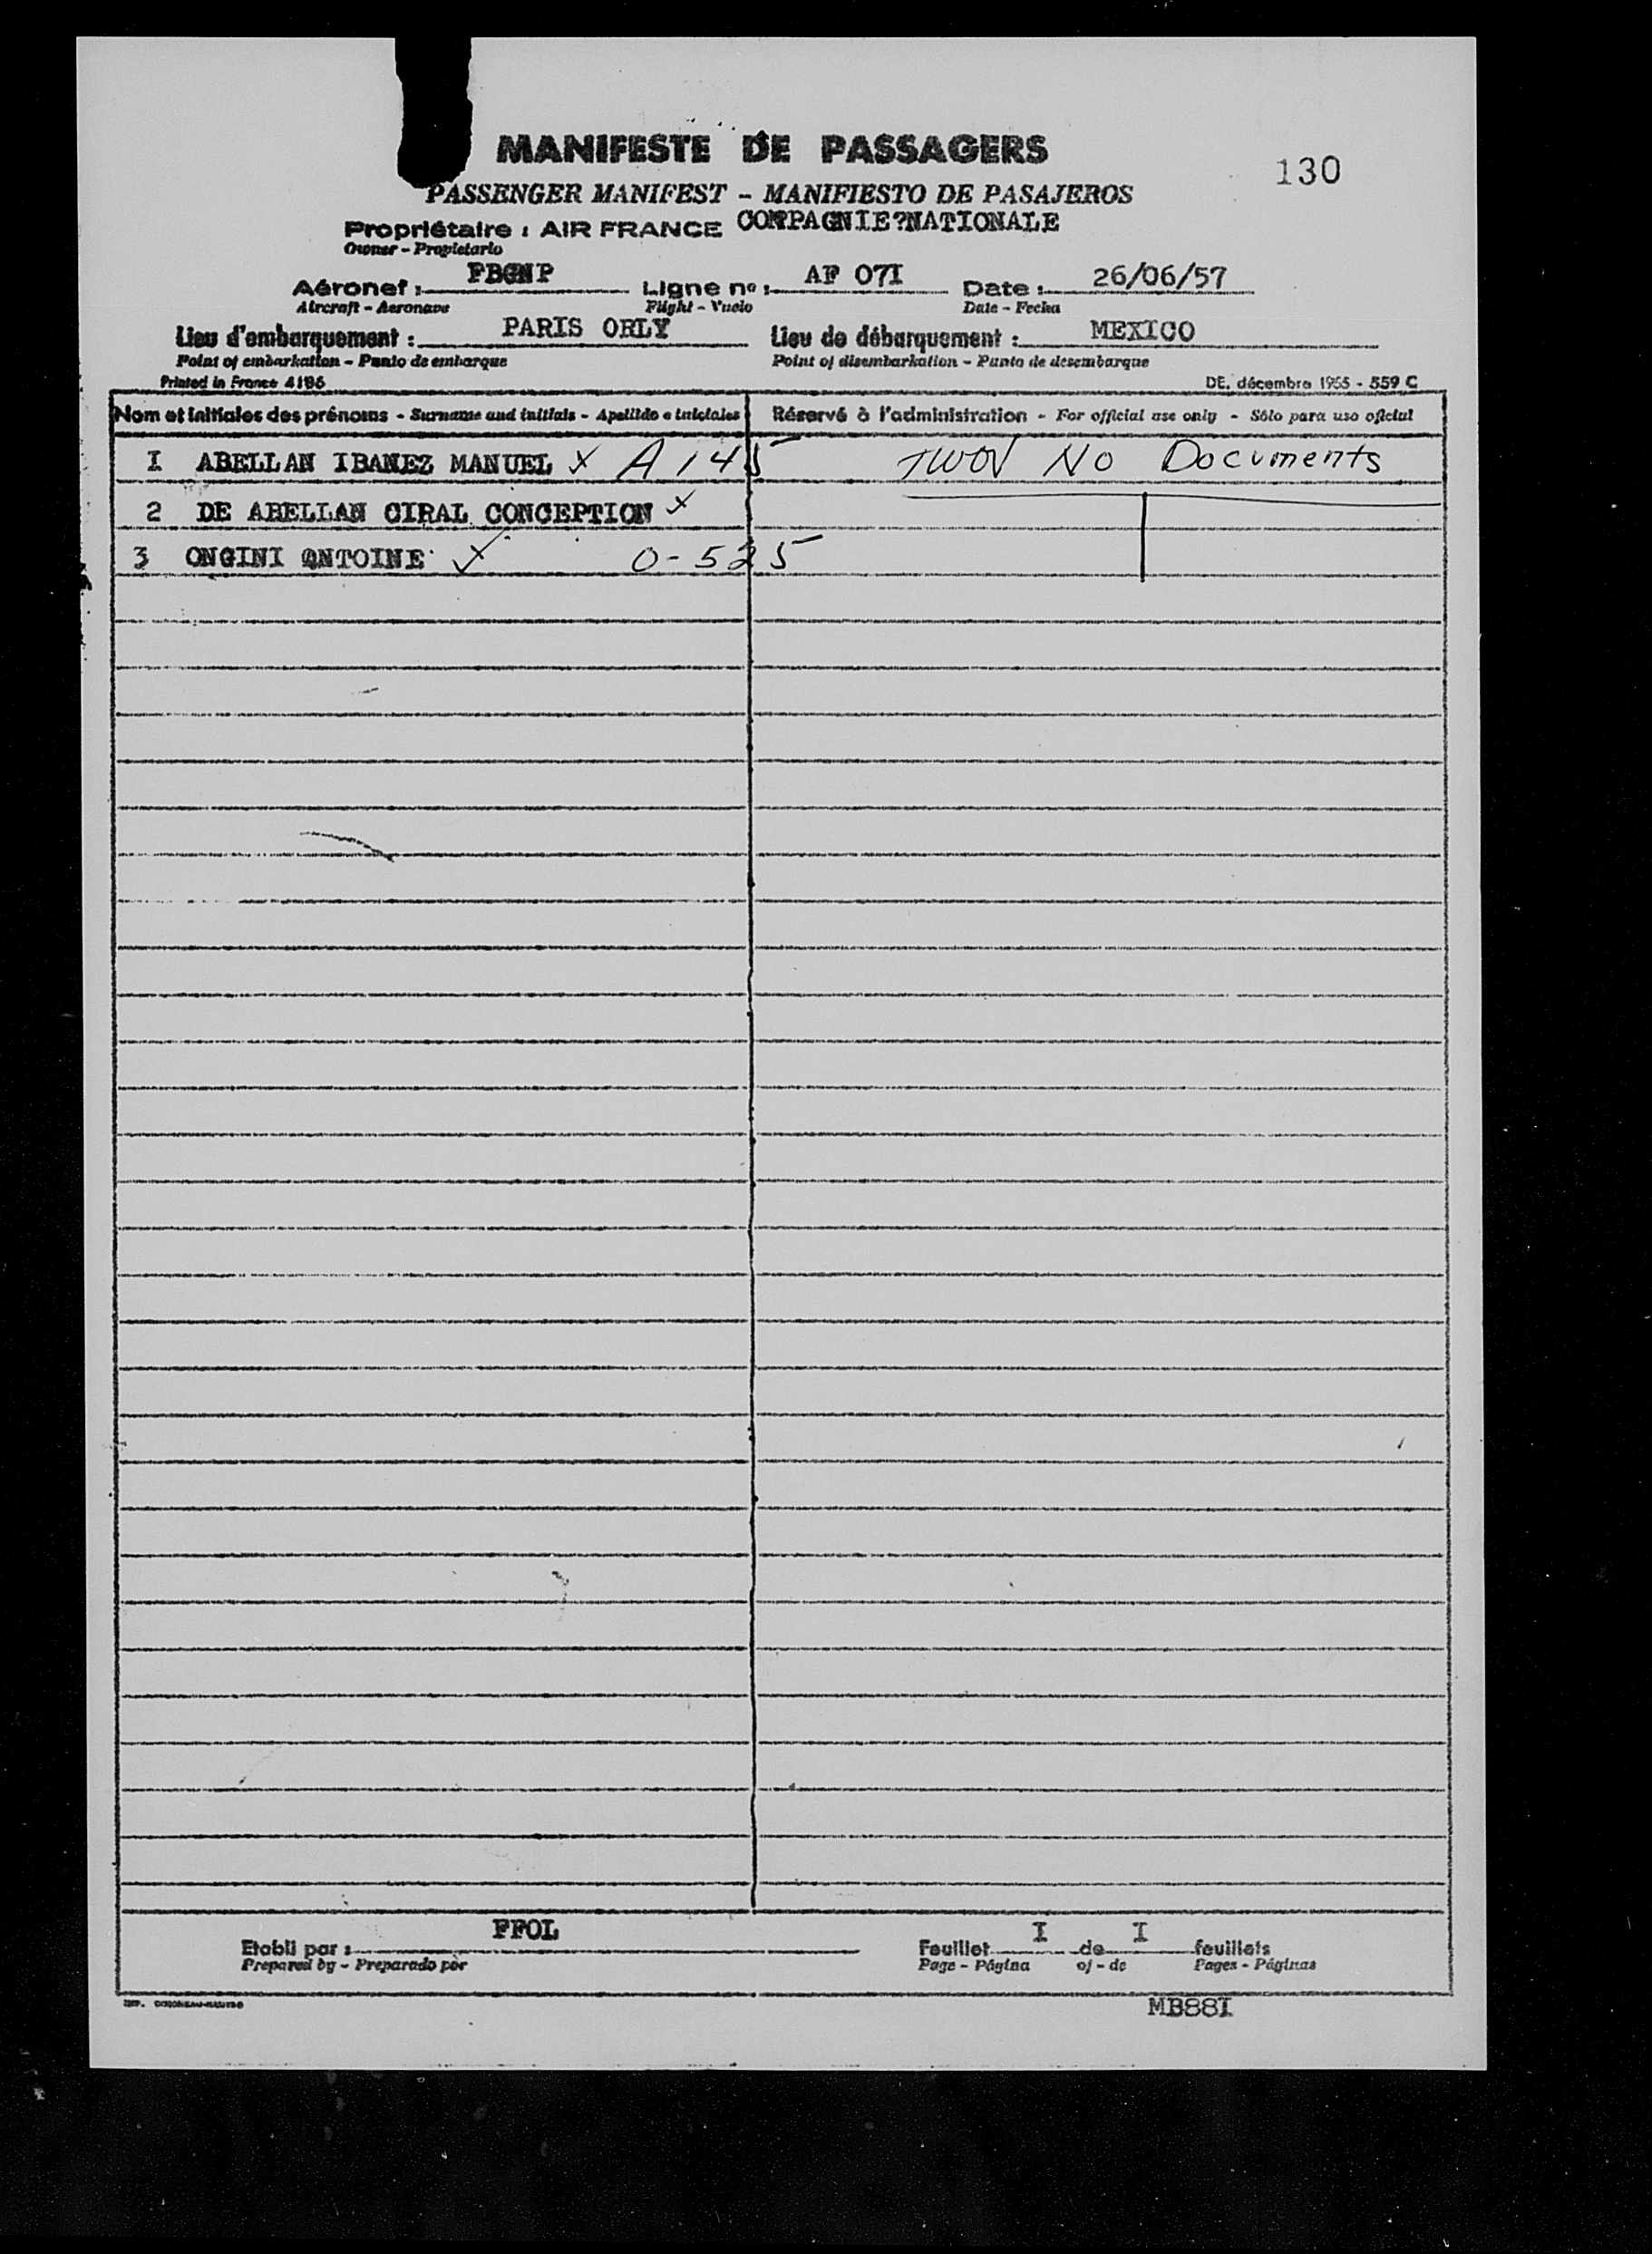 MANIFESTE DE PASSAGERS
130
PASSENGER MANIFEST - MANIFIESTO DE PASAJEROS
Propriétaire : AIR FRANCE COMPAGNIE?NATIONALE
Owner - Propietario
Aéronef : FBGNP Ligne no : AF 07I Date : 26/06/57
Aircraft - Aeronave Flight - Vuelo Date - Fecha
Lieu d'embarquement : PARIS ORLY Lieu de débarquement : MEXICO
Point of embarkation - Punto de embarque Point of disembarkation - Punto de desembarque
Printed in France 4186 DE. décembre 1955 - 559 C
Nom et initiales des prénoms - Surname and initials - Apellido e iniciales Réservé à l'administration - For official use only - Sólo para uso oficial
I ABELLAN IBANEZ MANUEL x A 145 TWOV No Documents
2 DE ABELLAN CIRAL CONCEPTION x
3 ONGINI ANTOINE x 0-525
Etabli par : FFOL Feuillet I de I feuillets
Prepared by - Preparado por Page - Página of - de Pages - Páginas
MB88I